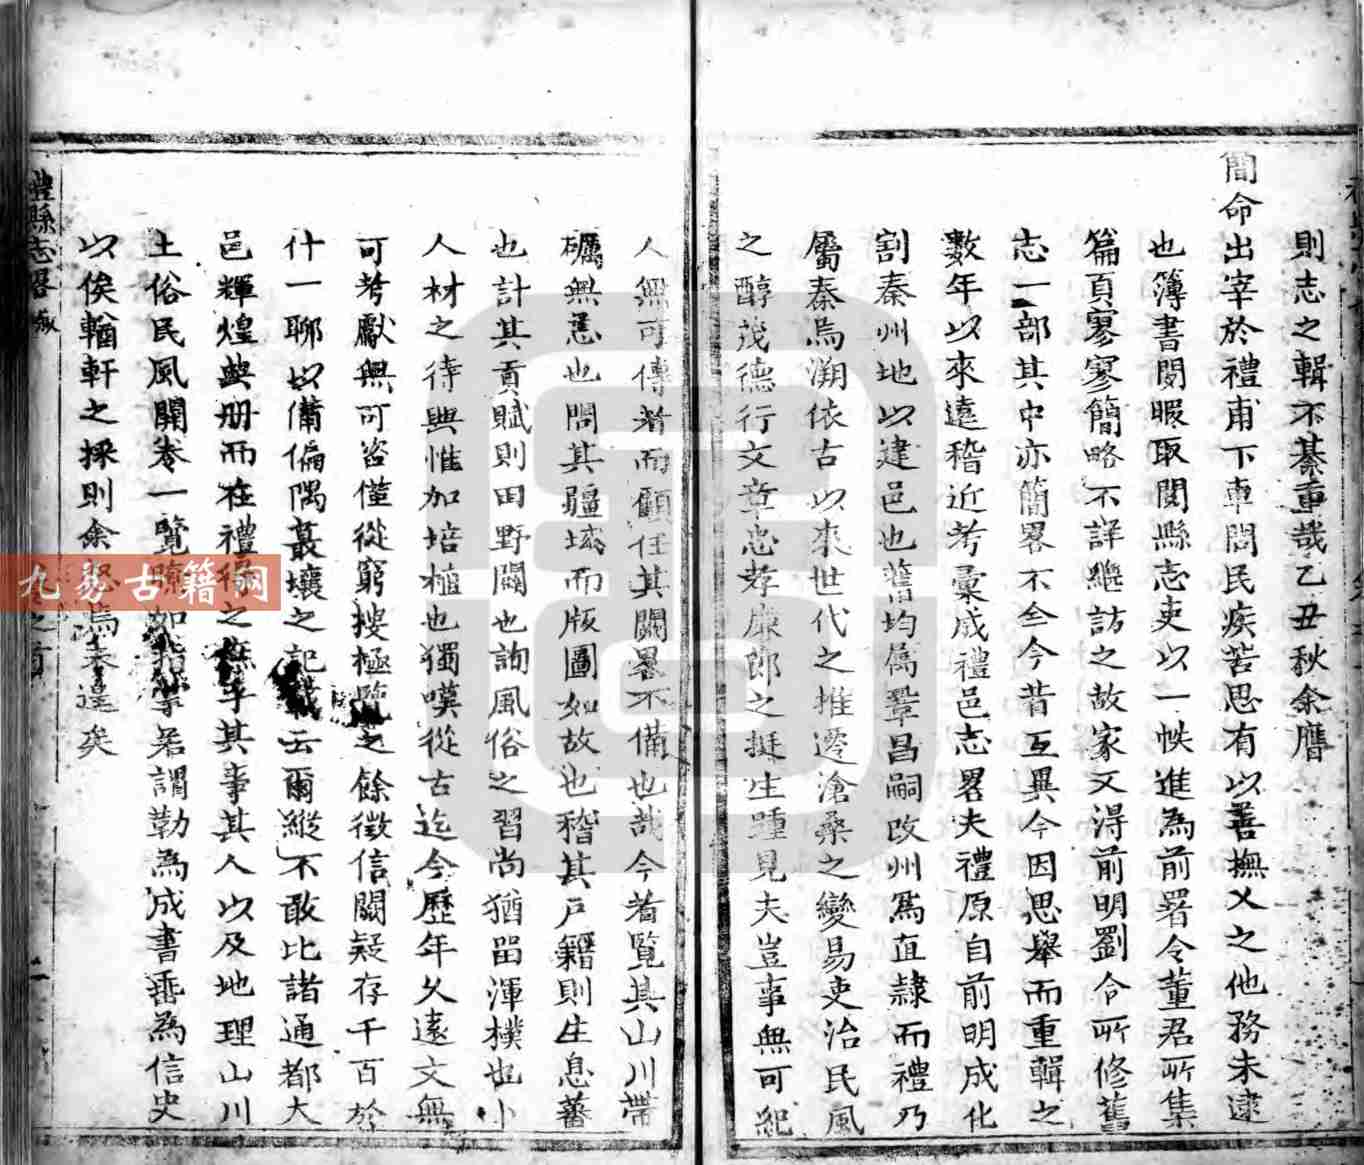 則志之輯不綦重哉乙丑秋余膺
簡命出宰於禮甫下車問民疾苦思有以善撫乂之他務未逮
也簿書閒暇取閱縣志吏以一帙進為前署令董君所集
篇頁寥寥簡略不詳繼訪之故家又得前明劉令所修舊
志一部其中亦簡畧不全今昔互異今因思舉而重輯之
數年以來遠稽近考彙成禮邑志畧夫禮原自前明成化
割秦州地以建邑也舊均屬鞏昌嗣改州為直隸而禮乃
屬秦焉溯依古以來世代之推遷滄桑之變易吏治民風
之醇茂德行文章忠孝廉節之挺生踵見夫豈事無可紀
人無可傳者而顧任其闕畧不備也哉今者覽其山川帶
礪無恙也問其疆域而版圖如故也稽其戶籍則生息蕃
也計其貢賦則田野闢也詢風俗之習尚猶畱渾樸也小
人材之待興惟加培植也獨嘆從古迄今歷年久遠文無
可考獻無可咨僅從窮搜極覽之餘徵信闕疑存千百於
什一聊以備偏隅蕞壤之記載云爾縱不敢比諸通都大
邑輝煌典册而在禮
之
其事其人以及地理山川
土俗民風開卷一覽瞭如指掌若謂勒為成書垂為信史
以俟輶軒之採則余
焉未遑矣
禮縣志畧
卷之首
二
九易古籍网